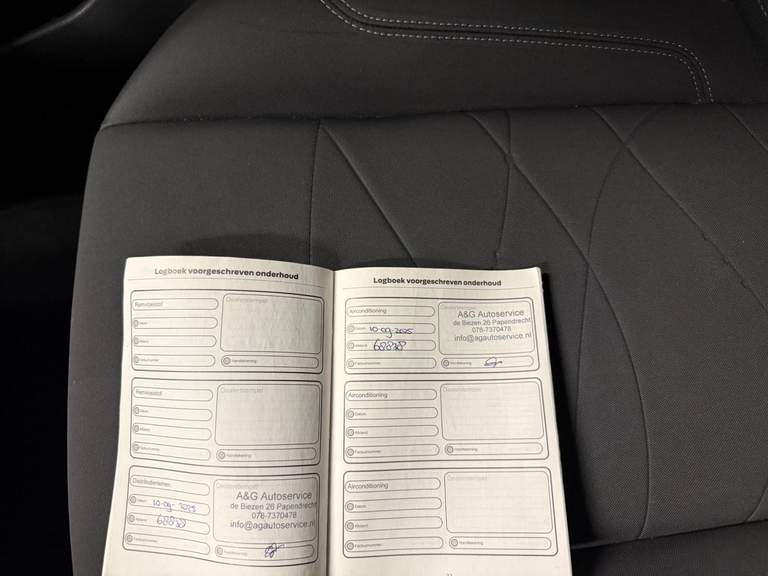 Logboek voorgeschreven onderhoud
Remvloeistof
Datum
Afstand
Factuurnummer
Dealerstempel
Handtekening
Remvloeistof
Datum
Afstand
Factuurnummer
Dealerstempel
Handtekening
Distributieriemen
Datum 10-09-2025
Afstand 68828
Factuurnummer
A&G Autoservice
de Biezen 26 Papendrecht
078-7370478
info@agautoservice.nl
Handtekening
Logboek voorgeschreven onderhoud
Airconditioning
Datum 10-09-2025
Afstand 68828
Factuurnummer
A&G Autoservice
de Biezen 26 Papendrecht
078-7370478
info@agautoservice.nl
Handtekening
Airconditioning
Datum
Afstand
Factuurnummer
Dealerstempel
Handtekening
Airconditioning
Datum
Afstand
Factuurnummer
Dealerstempel
Handtekening